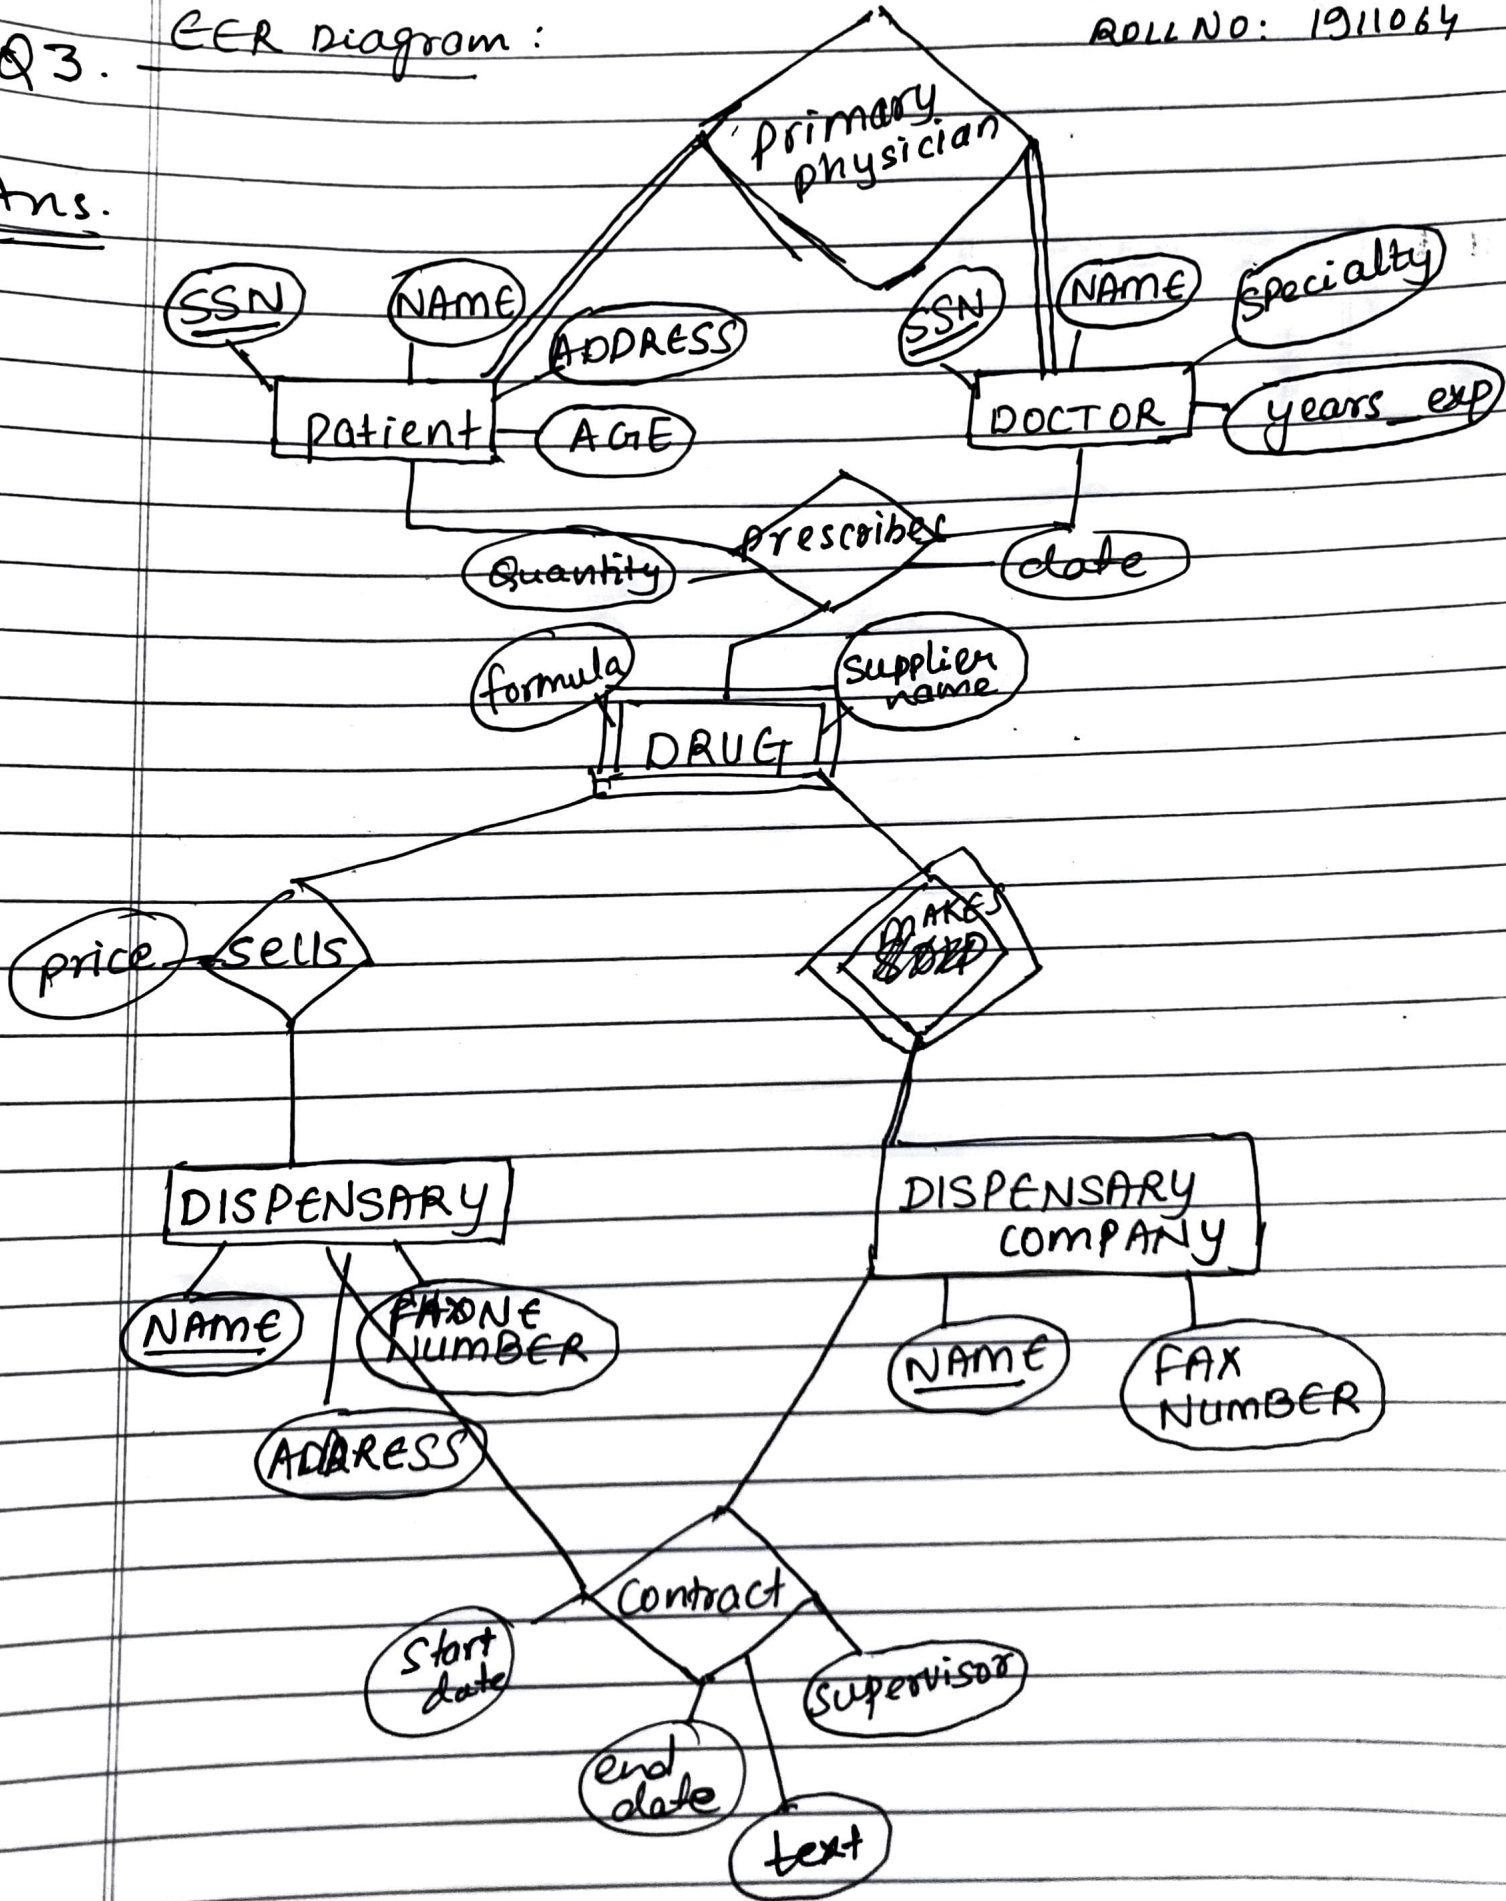 Q3. EER Diagram:
ROLL NO: 1911064
Ans.
Primary
physician
SSN
NAME
ADDRESS
AGE
patient
SSN
NAME
specialty
years_exp
DOCTOR
prescribes
Quantity
date
formula
supplier
name
DRUG
price
sells
MAKES
DISPENSARY
DISPENSARY
COMPANY
NAME
PHONE
NUMBER
ADDRESS
NAME
FAX
NUMBER
Contract
Start
date
end
date
text
supervisor